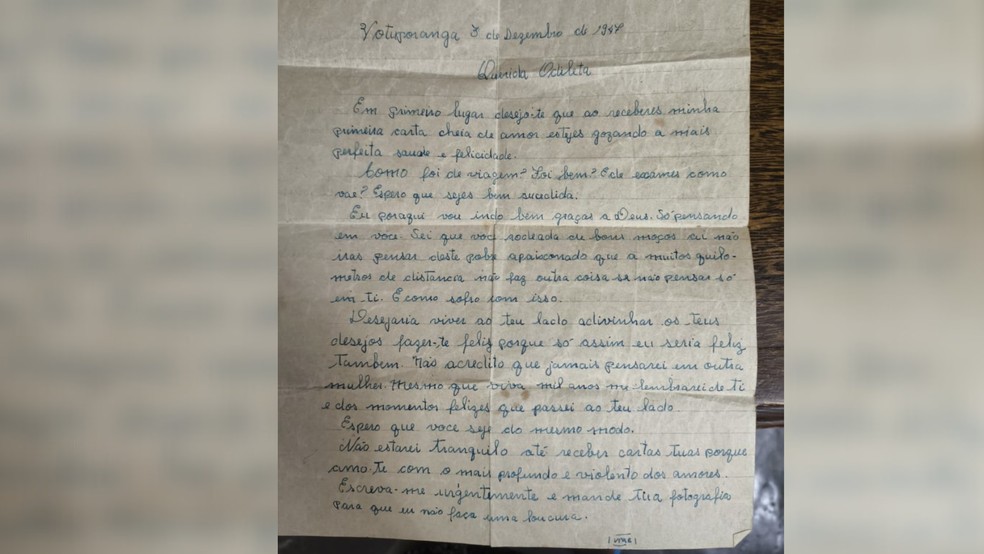 Votuporanga 7 de Dezembro de 1947
Querida Odileta
Em primeiro lugar desejo-te que ao receberes minha
primeira carta cheia de amor estejes gozando a mais
perfeita saude e felicidade.
Como foi de viagem? Foi bem? E de exames como
vae? Espero que sejes bem sucedida.
Eu poraqui vou indo bem graças a Deus. Só pensando
em voce. Sei que voce rodeada de bons moços ai não
ias pensar deste pobre apaixonado que a muitos quilo-
metros de distância não faz outra coisa se não pensar só
em ti. E como sofro com isso.
Desejaria viver ao teu lado adivinhar os teus
desejos fazer-te feliz porque só assim eu seria feliz
tambem. Não acredito que jamais pensarei em outra
mulher. Mesmo que viva mil anos me lembrarei de ti
e dos momentos felizes que passei ao teu lado.
Espero que voce seje do mesmo modo.
Não estarei tranquilo até receber cartas tuas porque
amo-te com o mais profundo e violento dos amores.
Escreva-me urgentemente e mande tua fotografia
para que eu não faça uma loucura.